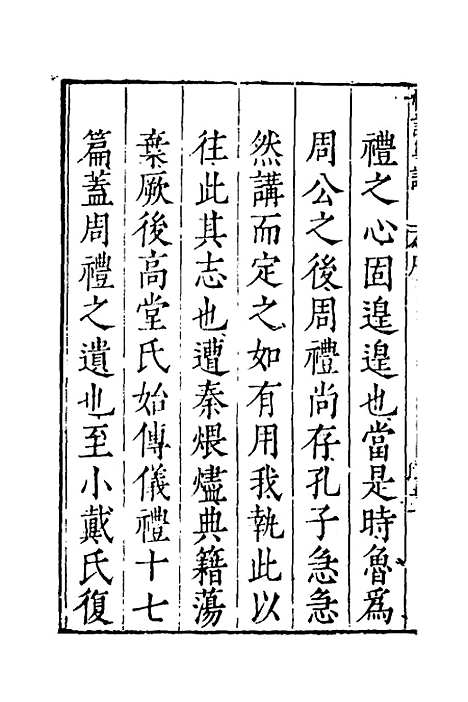 禮之心固遑遑也當是時魯爲
周公之後周禮尚存孔子急急
然講而定之如有用我執此以
往此其志也遭秦煨燼典籍蕩
棄厥後高堂氏始傳儀禮十七
篇蓋周禮之遺也至小戴氏復